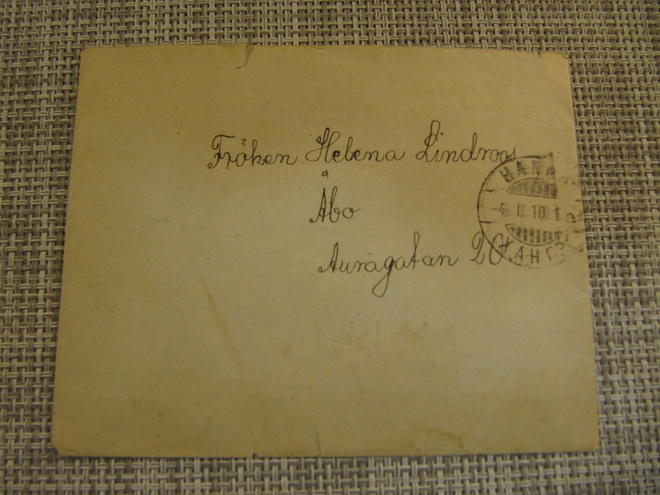 Fröken Helena Lindroos
Åbo
Auragatan 20
HAN
-4. II. 10. 1
ХАНГ